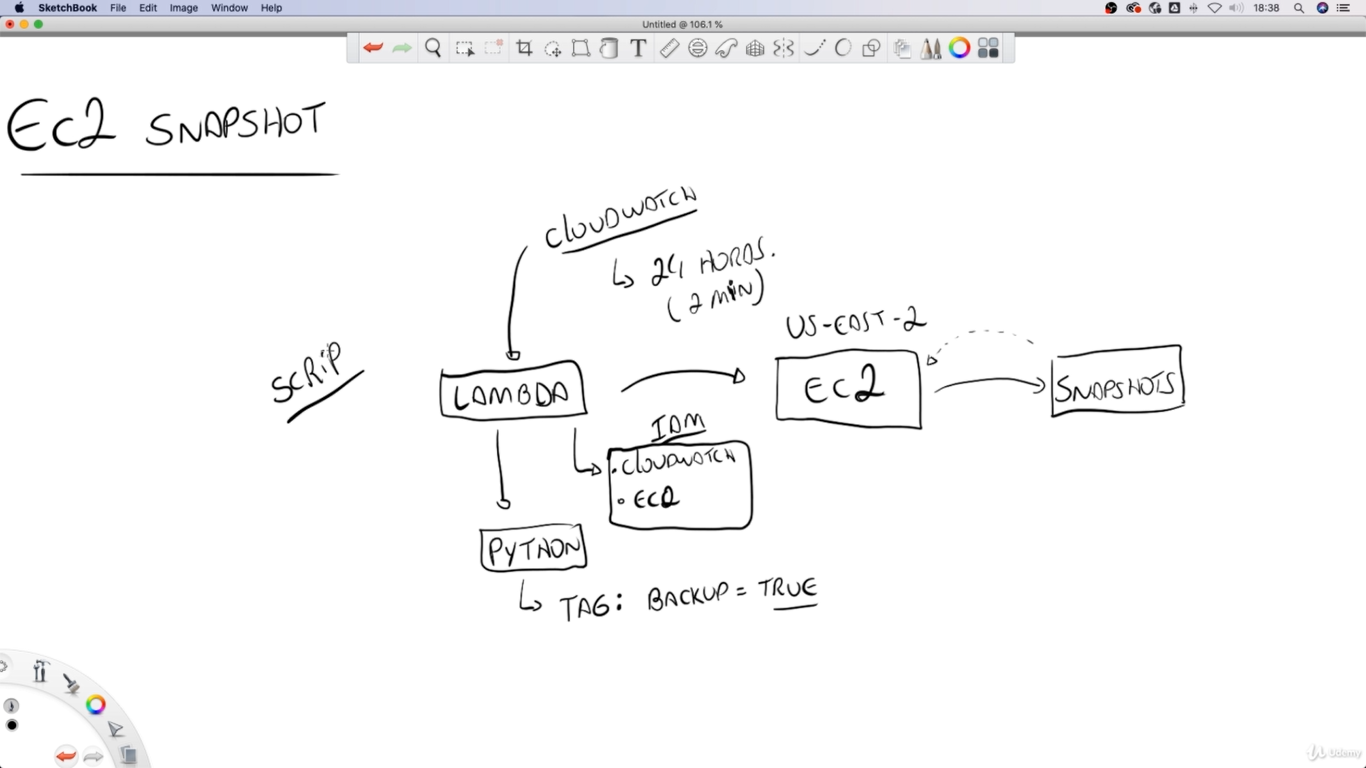 SketchBook File Edit Image Window Help 18:38
Untitled @ 106.1 %
EC2 SNAPSHOT
CLOUDWATCH
24 HORAS.
(2 MIN)
US-EAST-2
SCRIP
LAMBDA
EC2
SNAPSHOTS
IAM
• CLOUDWATCH
• EC2
PYTHON
TAG: BACKUP = TRUE
Udemy